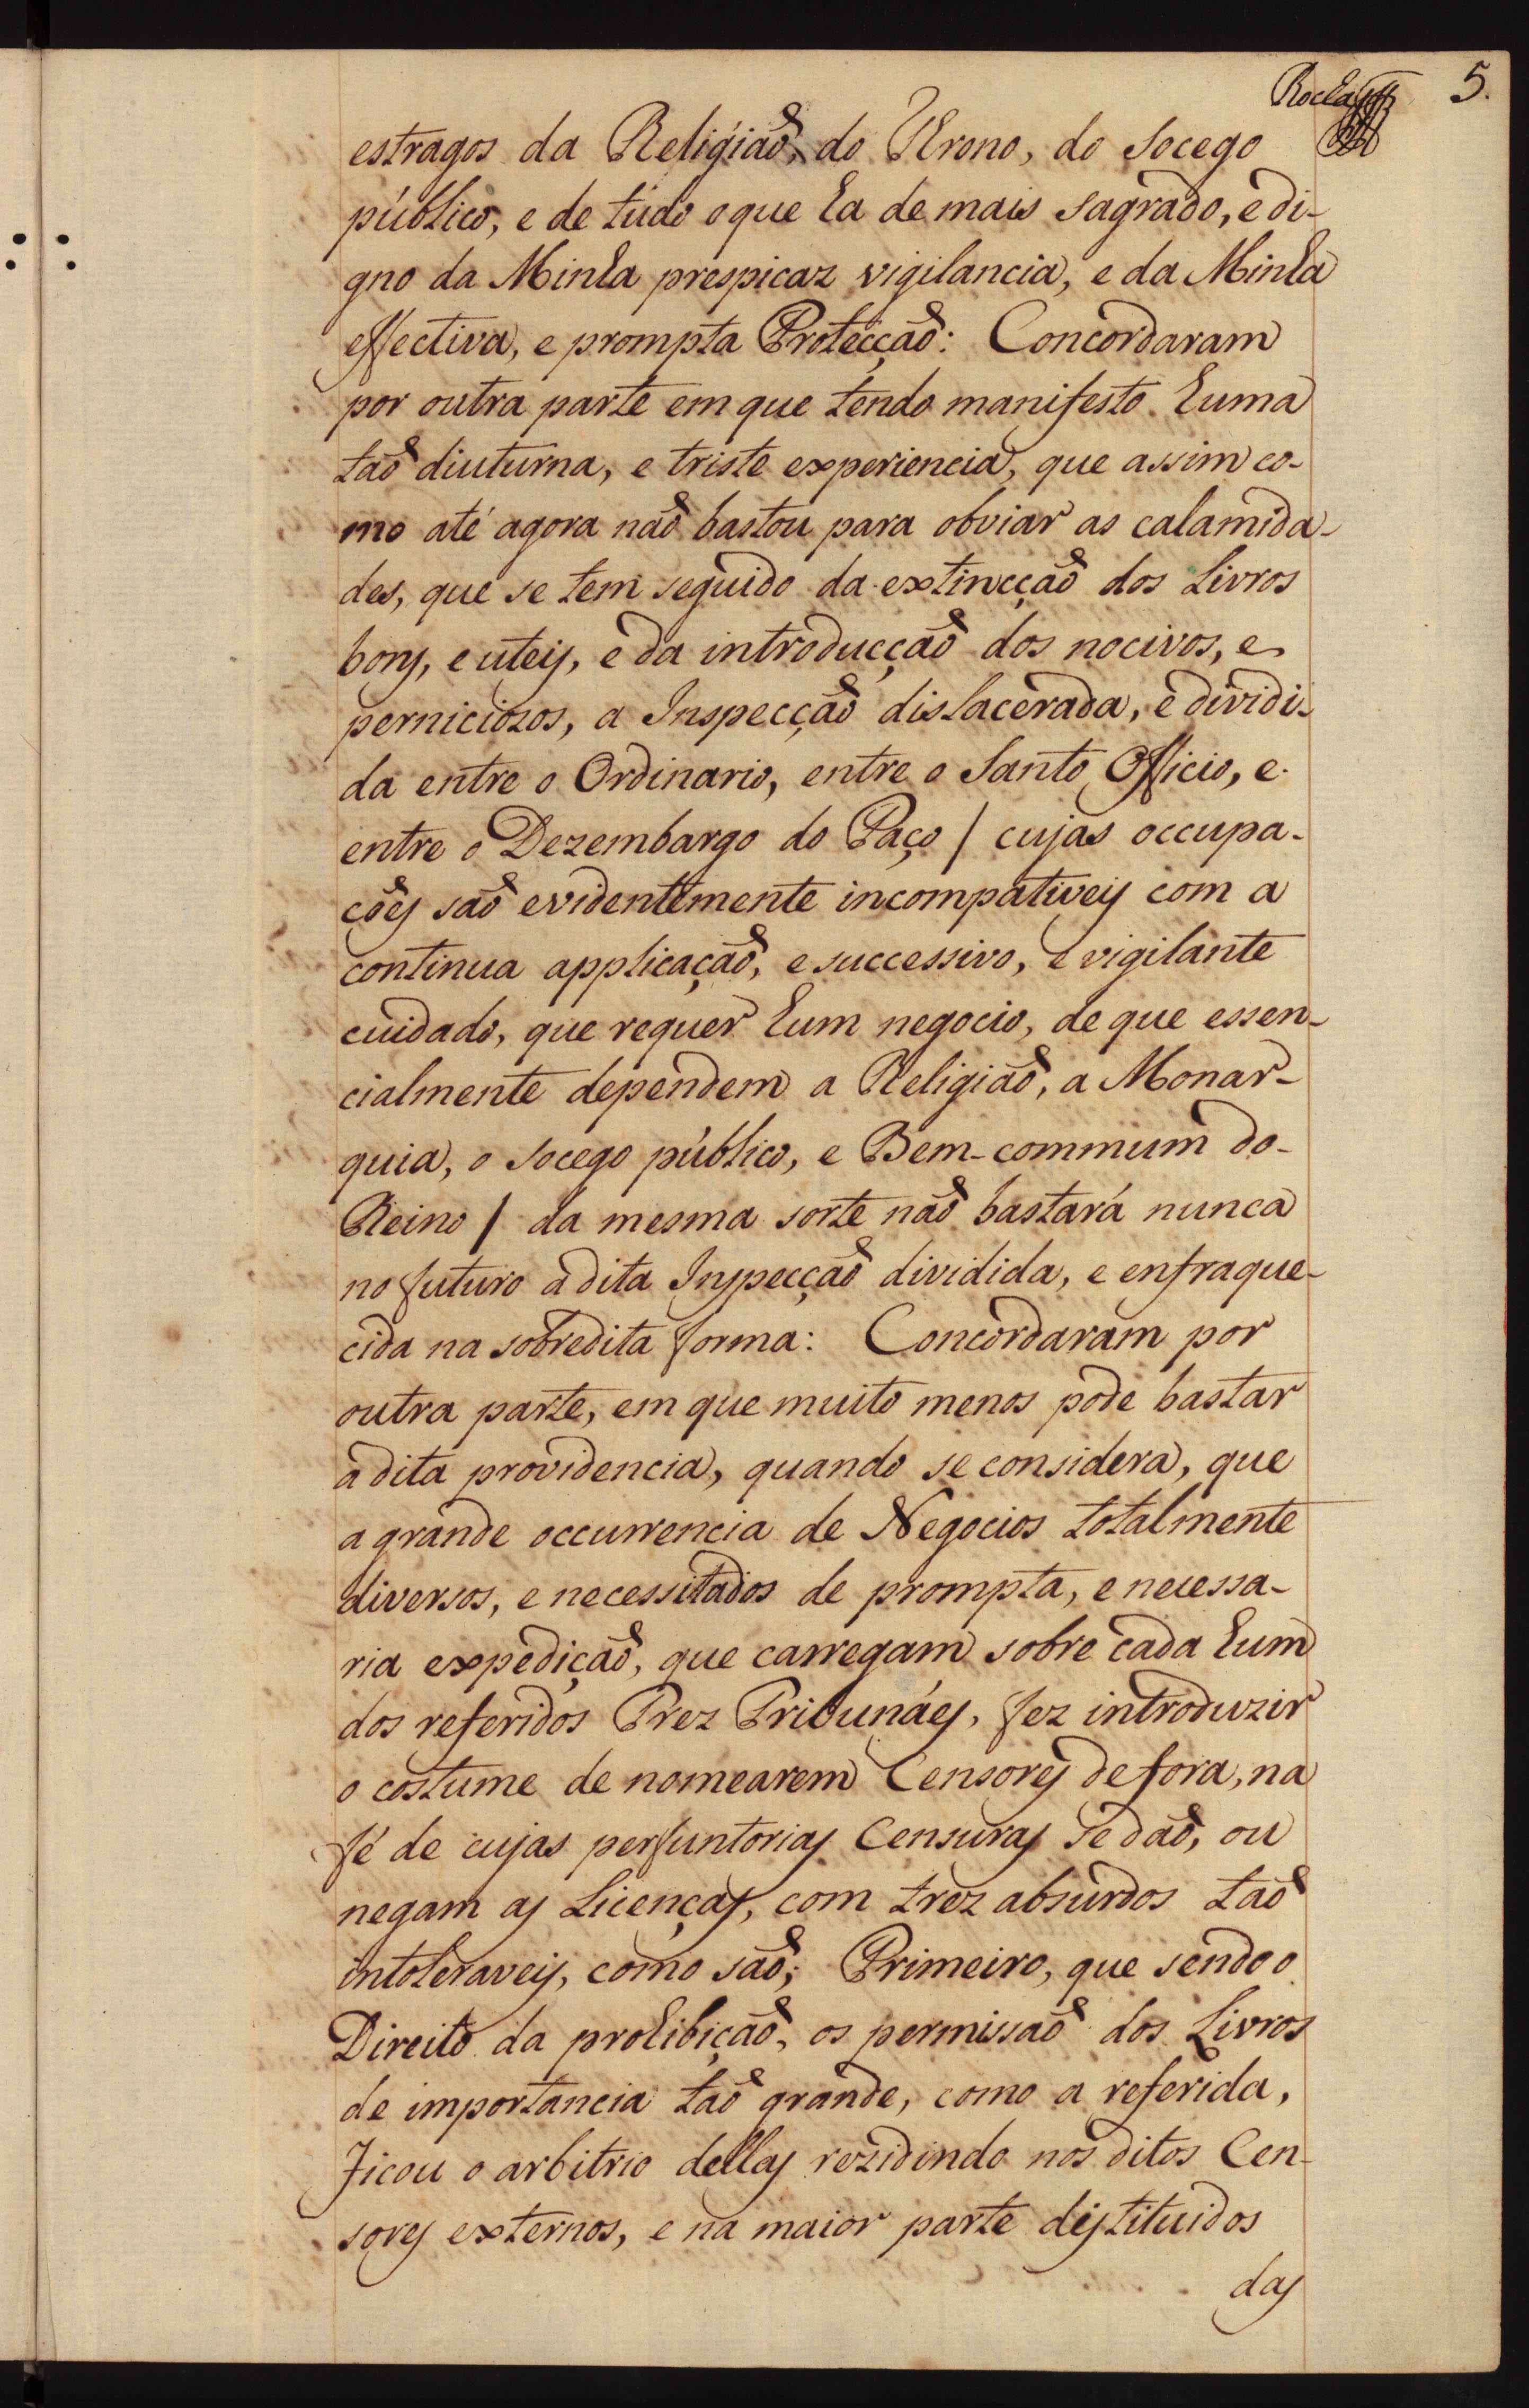 Rocha 5.
estragos da Religiaõ, do Throno, do Socego
público, e de tudo o que ha de mais sagrado, e di-
gno da Minha prespicaz vigilancia, e da Minha
effectiva, e prompta Protecçaõ: Concordaram
por outra parte em que tendo manifesto huma
taõ diuturna, e triste experiencia, que assim co-
mo até agora naõ bastou para obviar as calamida-
des, que se tem seguido da extincçaõ dos Livros
bons, e uteis, e da introducçaõ dos nocivos, e
perniciozos, a Inspecçaõ dislacerada, e dividi-
da entre o Ordinario, entre o Santo Officio, e
entre o Dezembargo do Paço / cujas occupa-
ções saõ evidentemente incompativeis com a
continua applicaçaõ, e successivo, e vigilante
cuidado, que requer hum negocio, de que essen-
cialmente dependem a Religiaõ, a Monar-
quia, o Socego público, e Bem-commum do-
Reino / da mesma sorte naõ bastará nunca
no futuro a dita Inspecçaõ dividida, e enfraque-
cida na sobredita forma: Concordaram por
outra parte, em que muito menos pode bastar
a dita providencia, quando se considera, que
a grande occurrencia de Negocios totalmente
diversos, e necessitados de prompta, e necessa-
ria expediçaõ, que carregam sobre cada hum
dos referidos Trez Tribunáes, fez introduzir
o costume de nomearem Censores de fora, na
fé de cujas perfuntorias Censuras se daõ, ou
negam as Licenças, com trez absurdos taõ
intoleraveis, como saõ; Primeiro, que sendo o
Direito da prohibiçaõ, os permissaõ dos Livros
de importancia taõ grande, como a referida,
Ficou o arbitrio dellas rezidindo nos ditos Cen-
sores externos, e na maior parte destituidos
das